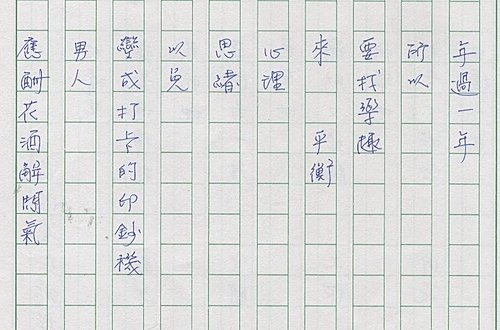 年過一年
所以
要找樂趣
來 平衡
心理
思緒
以免
變成打卡的印鈔機
男人
應酬花酒解悶氣